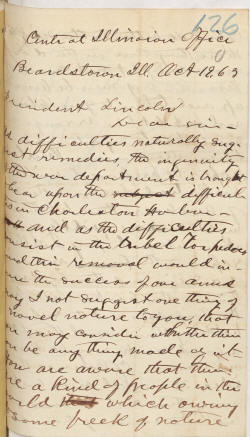 126
Central Illinoian Office
Beardstown Ill. Oct 1863
President Lincoln
Dear Sir—
difficulties naturally sug-
gest remedies, the ingenuity
of the war department is brought
to bear upon the subject difficult
in Charleston Harbor—
and as the difficulties
consist in the rebel torpedoes
and their removal would in-
sure the success of our arms
may I not suggest one thing of
novel nature to you, that
you may consider whether there
can be any thing made of it
you are aware that there
are a Kind of people in the
world which owing
some freek of nature